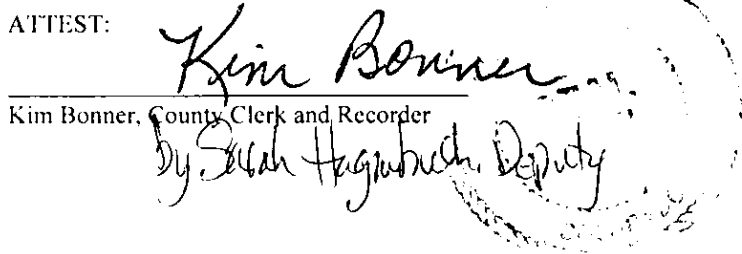 ATTEST:
Kim Bonner
Kim Bonner, County Clerk and Recorder
by Sarah Deputy